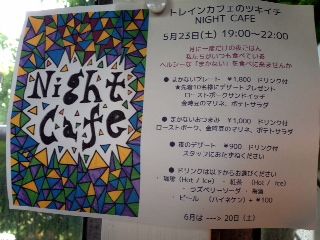 Night
Cafe
トレインカフェのツキイチ
NIGHT CAFE
5月23日(土) 19:00～22:00
月に一度だけの夜ごはん
私たちがいつも食べている
ヘルシーな「まかない」を食べに来ませんか
● まかないプレート ￥1,800 ドリンク付
★先着10名様にデザートプレゼント
ローストポークサンドイッチ
金時豆のマリネ、ポテトサラダ
● まかないおつまみ ￥1,000 ドリンク付
ローストポーク、金時豆のマリネ、ポテトサラダ
● 夜のデザート ￥900 ドリンク付
スタッフにおたずねください
● ドリンクは以下からお選びください
・珈琲 (Hot / Ice) ・紅茶 (Hot / Ice)
・ラズベリーソーダ
・ビール (ハイネケン) +￥100
6月は ---> 20日(土)